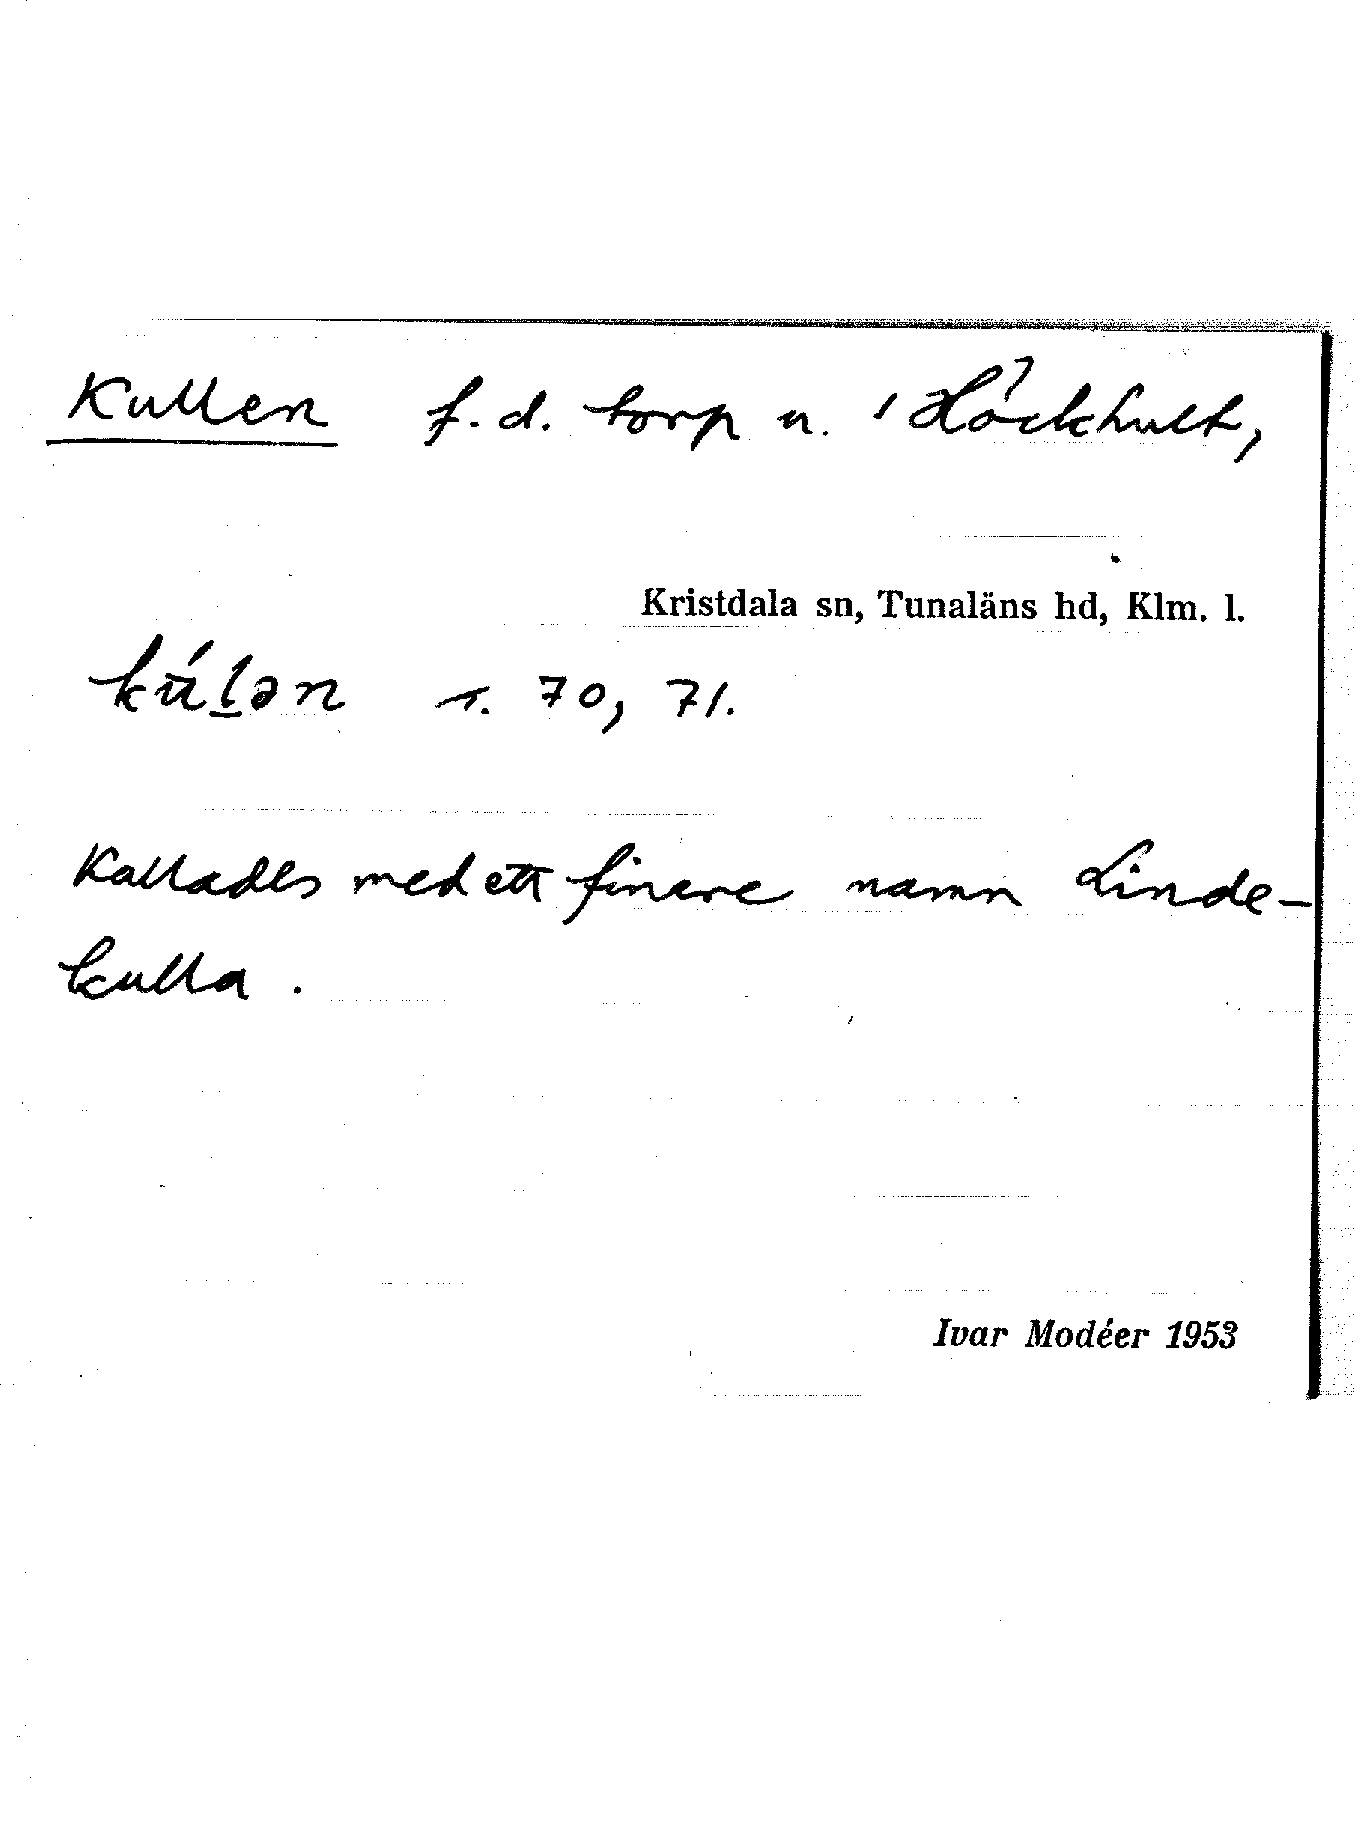 Kullen f.d. torp u. 1 Höckhult,
Kristdala sn, Tunaläns hd, Klm. l.
kúlən s. 70, 71.
Kallades med ett finare namn Linde-
kulla.
Ivar Modéer 1953